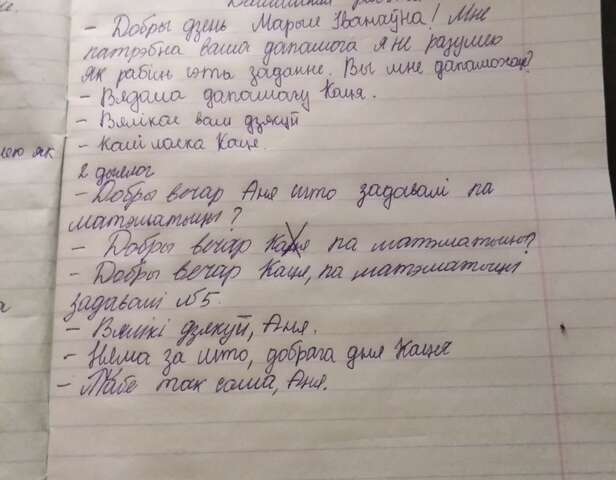 Дамашняя
не.
- Добры дзень Марыя Іванаўна! Мне
патрэбна ваша дапамога я не разумею
як рабіць гэты заданне. Вы мне дапаможаце?
- Вядома дапамагу Каця.
- Вялікае вам дзякуй
- Калі ласка Каця.
нею як
2 дыялог
- Добры вечар Аня што задавалі па
матэматыцы?
- Добры вечар па матэматыцы?
- Добры вечар Каця, па матэматыцы
задавалі №5.
а
- Вялікі дзякуй, Аня.
- Няма за што, добрага дня Каця
- Табе так сама, Аня.